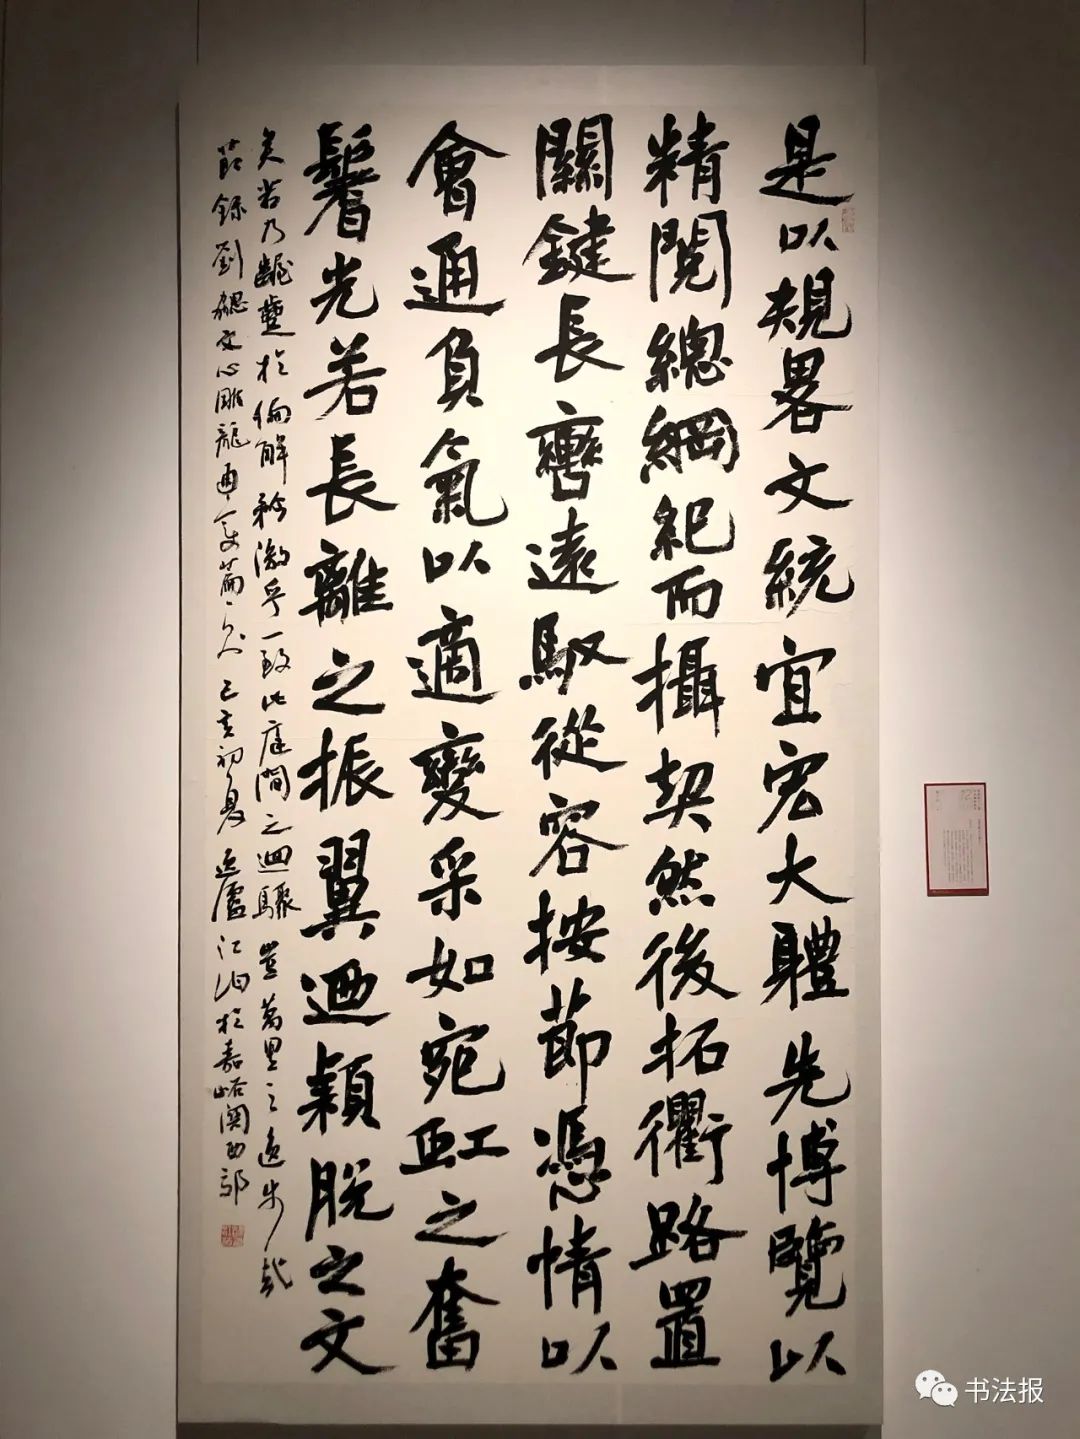 是以規畧文統宜宏大體先博覽以
精閱總綱紀而攝契然後拓衢路置
關鍵長轡遠馭從容按節憑情以
會通負氣以適變采如宛虹之奮
鬐光若長離之振翼迺穎脫之文
矣若乃齷齪於偏解矜激乎一致此庭間之迴驟豈萬里之逸步哉
節錄劉勰文心雕龍通變篇之句己亥初夏逸廬江泊於嘉峪關西部
书法报